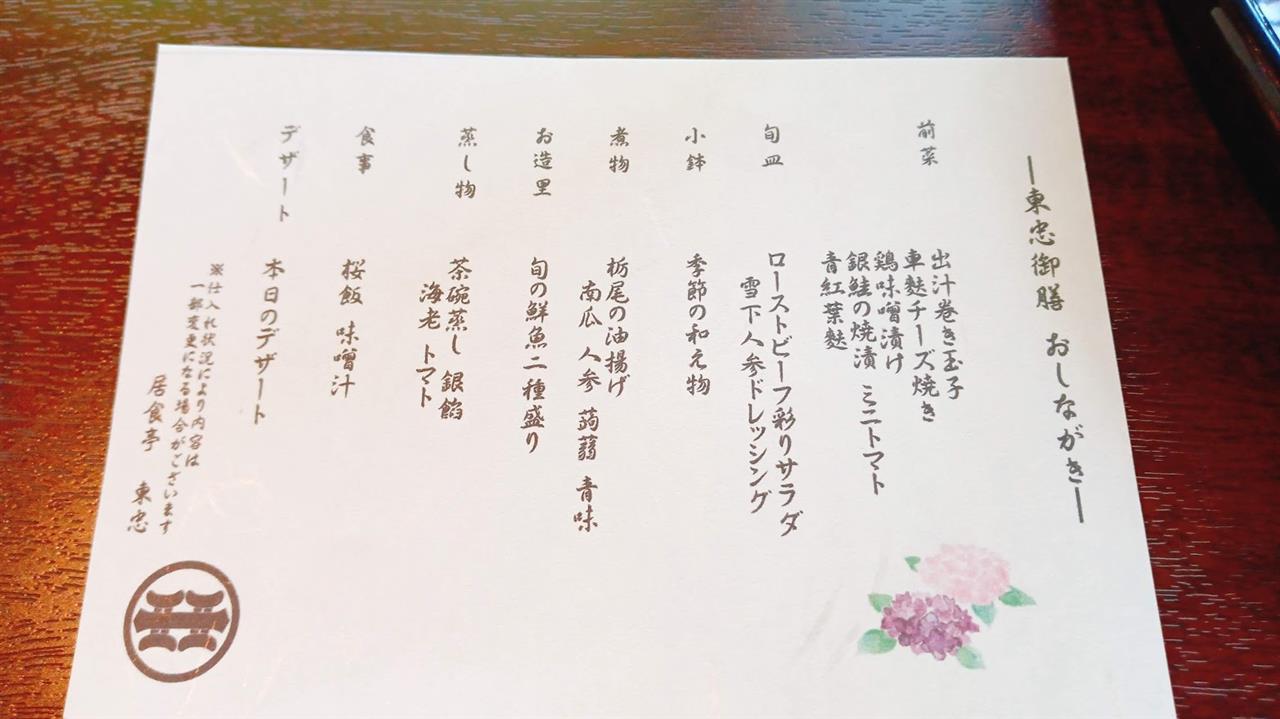 ―東忠御膳 おしながき―
前菜
出汁巻き玉子
車麩チーズ焼き
鶏味噌漬け
銀鮭の焼漬 ミニトマト
青紅葉麩
旬皿
ローストビーフ彩りサラダ
雪下人参ドレッシング
小鉢
季節の和え物
煮物
栃尾の油揚げ
南瓜 人参 蒟蒻 青味
お造里
旬の鮮魚二種盛り
蒸し物
茶碗蒸し 銀餡
海老 トマト
食事
桜飯 味噌汁
デザート
本日のデザート
※仕入れ状況により内容は
一部変更になる場合がございます
居食亭 東忠